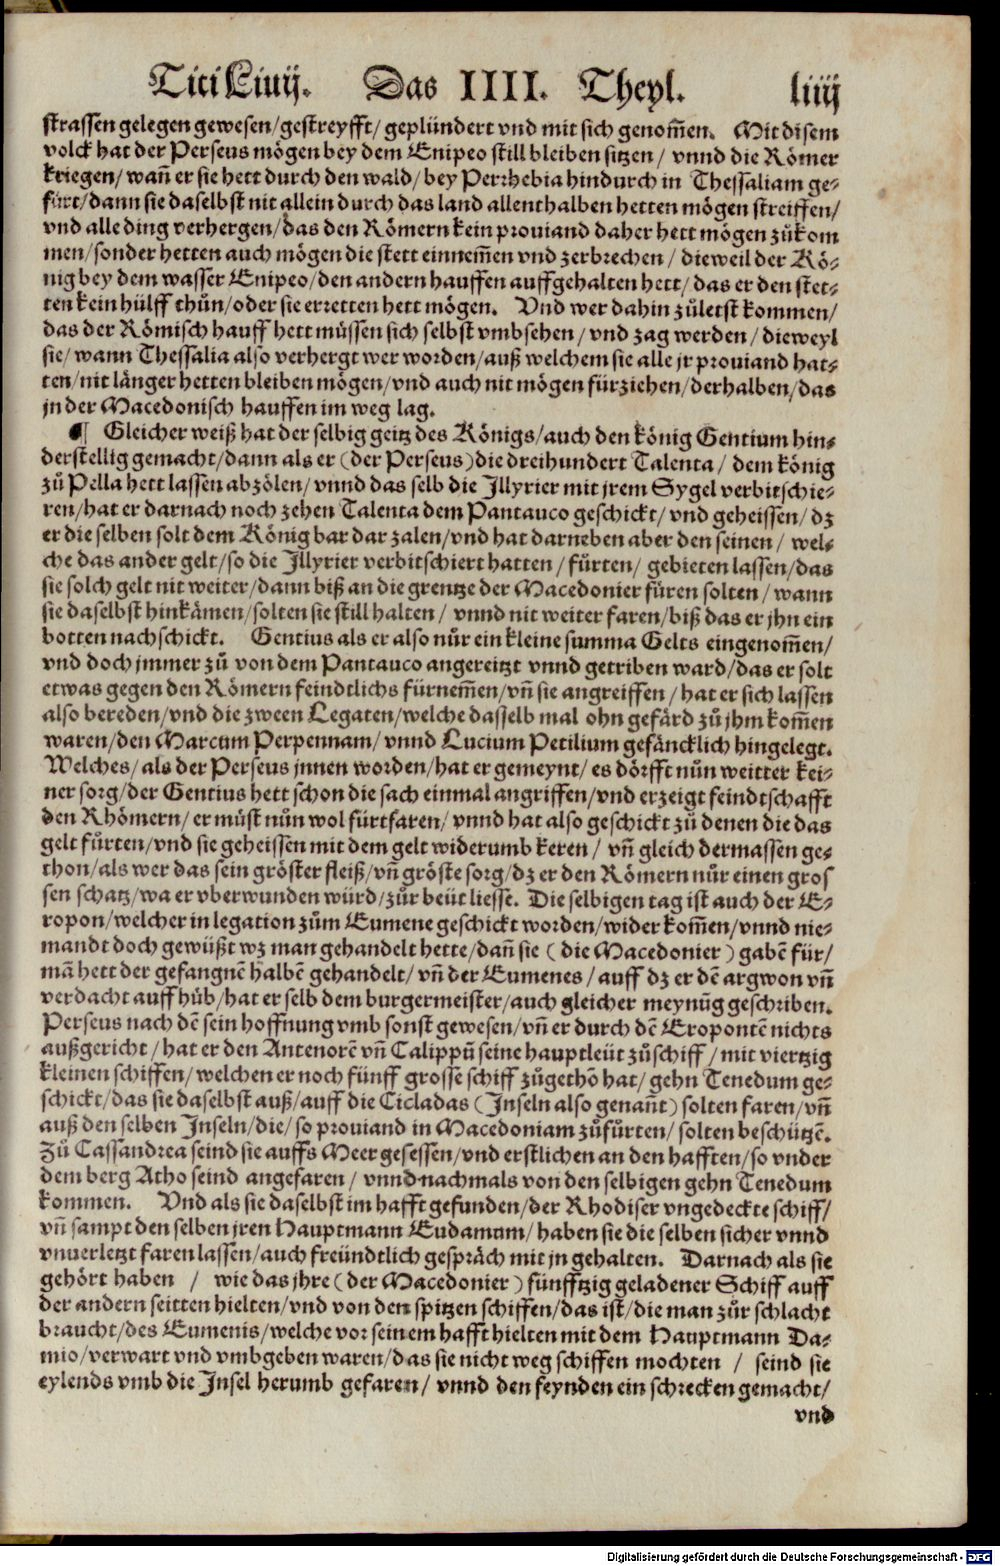 Titi Liuij. Das IIII. Theyl. liiij
strassen gelegen gewesen/gestreyfft/geplündert vnd mit sich genom̃en. Mit disem
volck hat der Perseus mögen bey dem Enipeo still bleiben sitzen/ vnnd die Römer
kriegen/wañ er sie hett durch den wald/bey Perrhebia hindurch in Thessaliam ge-
fürt/dann sie daselbst nit allein durch das land allenthalben hetten mögen streiffen/
vnd alle ding verhergen/das den Römern kein prouiand daher hett mögen zůkom
men/sonder hetten auch mögen die stett einnem̃en vnd zerbrechen/ dieweil der Kö-
nig bey dem wasser Enipeo/den andern hauffen auffgehalten hett/das er den stet-
ten kein hülff thůn/oder sie erretten hett mögen. Vnd wer dahin zůletst kommen/
das der Römisch hauff hett müssen sich selbst vmbsehen/vnd zag werden/dieweyl
sie/wann Thessalia also verhergt wer worden/auß welchem sie alle jr prouiand hat-
ten/nit länger hetten bleiben mögen/vnd auch nit mögen fürziehen/derhalben/das
jn der Macedonisch hauffen im weg lag.
¶ Gleicher weiß hat der selbig geitz des Königs/auch den könig Gentium hin-
derstellig gemacht/dann als er (der Perseus) die dreihundert Talenta/ dem könig
zů Pella hett lassen abzölen/vnnd das selb die Jllyrier mit jrem Sygel verbitschie-
ren/hat er darnach noch zehen Talenta dem Pantauco geschickt/vnd geheissen/dz
er die selben solt dem König bar dar zalen/vnd hat darneben aber den seinen/ wel-
che das ander gelt/so die Jllyrier verbitschiert hatten/fürten/gebieten lassen/das
sie solch gelt nit weiter/dann biß an die grentze der Macedonier füren solten/wann
sie daselbst hinkämen/solten sie still halten/ vnnd nit weiter faren/biß das er jhn ein
botten nachschickt. Gentius als er also nůr ein kleine summa Gelts eingenom̃en/
vnd doch jmmer zů von dem Pantauco angereitzt vnnd getriben ward/das er solt
etwas gegen den Römern feindtlichs fürnem̃en/vñ sie angreiffen/hat er sich lassen
also bereden/vnd die zween Legaten/welche dasselb mal ohn gefärd zů jhm kom̃en
waren/den Marcum Perpennam/vnnd Lucium Petilium gefäncklich hingelegt.
Welches/als der Perseus jnnen worden/hat er gemeynt/es dörfft nůn weitter kei-
ner sorg/der Gentius hett schon die sach einmal angriffen/vnd erzeigt feindtschafft
den Rhömern/er můst nůn wol fürtfaren/vnnd hat also geschickt zů denen die das
gelt fürten/vnd sie geheissen mit dem gelt widerumb keren/ vñ gleich dermassen ge-
thon/als wer das sein gröster fleiß/vñ gröste sorg/dz er den Römern nůr einen gros
sen schatz/wa er vberwunden würd/zůr beüt liesse. Die selbigen tag ist auch der E-
ropon/welcher in legation zům Eumene geschickt worden/wider kom̃en/vnnd nie-
mandt doch gewüßt wz man gehandelt hette/dañ sie (die Macedonier) gabẽ für/
mã hett der gefangnẽ halbẽ gehandelt/vñ der Eumenes/auff dz er dẽ argwon vñ
verdacht auff hüb/hat er selb dem burgermeister/auch gleicher meynũg geschriben.
Perseus nach dẽ sein hoffnung vmb sonst gewesen/vñ er durch dẽ Eropontẽ nichts
außgericht/hat er den Antenorẽ vñ Calippũ seine hauptleüt zůschiff/mit viertzig
kleinen schiffen/welchen er noch fünff grosse schiff zůgethõ hat/gehn Tenedum ge-
schickt/das sie daselbst auß/auff die Cicladas (Inseln also genañt) solten faren/vñ
auß den selben Inseln/die/so prouiand in Macedoniam zůfürten/solten beschützẽ.
Zů Cassandrea seind sie auffs Meer gesessen/vnd erstlichen an den hafften/so vnder
dem berg Atho seind angefaren/ vnnd nachmals von den selbigen gehn Tenedum
kommen. Vnd als sie daselbst im hafft gefunden/der Rhodiser vngedeckte schiff/
vñ sampt den selben jren Hauptmann Eudamum/haben sie die selben sicher vnnd
vnuerletzt faren lassen/auch freündtlich gespräch mit jn gehalten. Darnach als sie
gehört haben / wie das jhre (der Macedonier) fünfftzig geladener Schiff auff
der andern seitten hielten/vnd von den spitzen schiffen/das ist/die man zůr schlacht
braucht/des Eumenis/welche vor seinem hafft hielten mit dem Hauptmann Da-
mio/verwart vnd vmbgeben waren/das sie nicht weg schiffen mochten / seind sie
eylends vmb die Insel herumb gefaren/ vnnd den feynden ein schrecken gemacht/
vnd
Digitalisierung gefördert durch die Deutsche Forschungsgemeinschaft - DFG